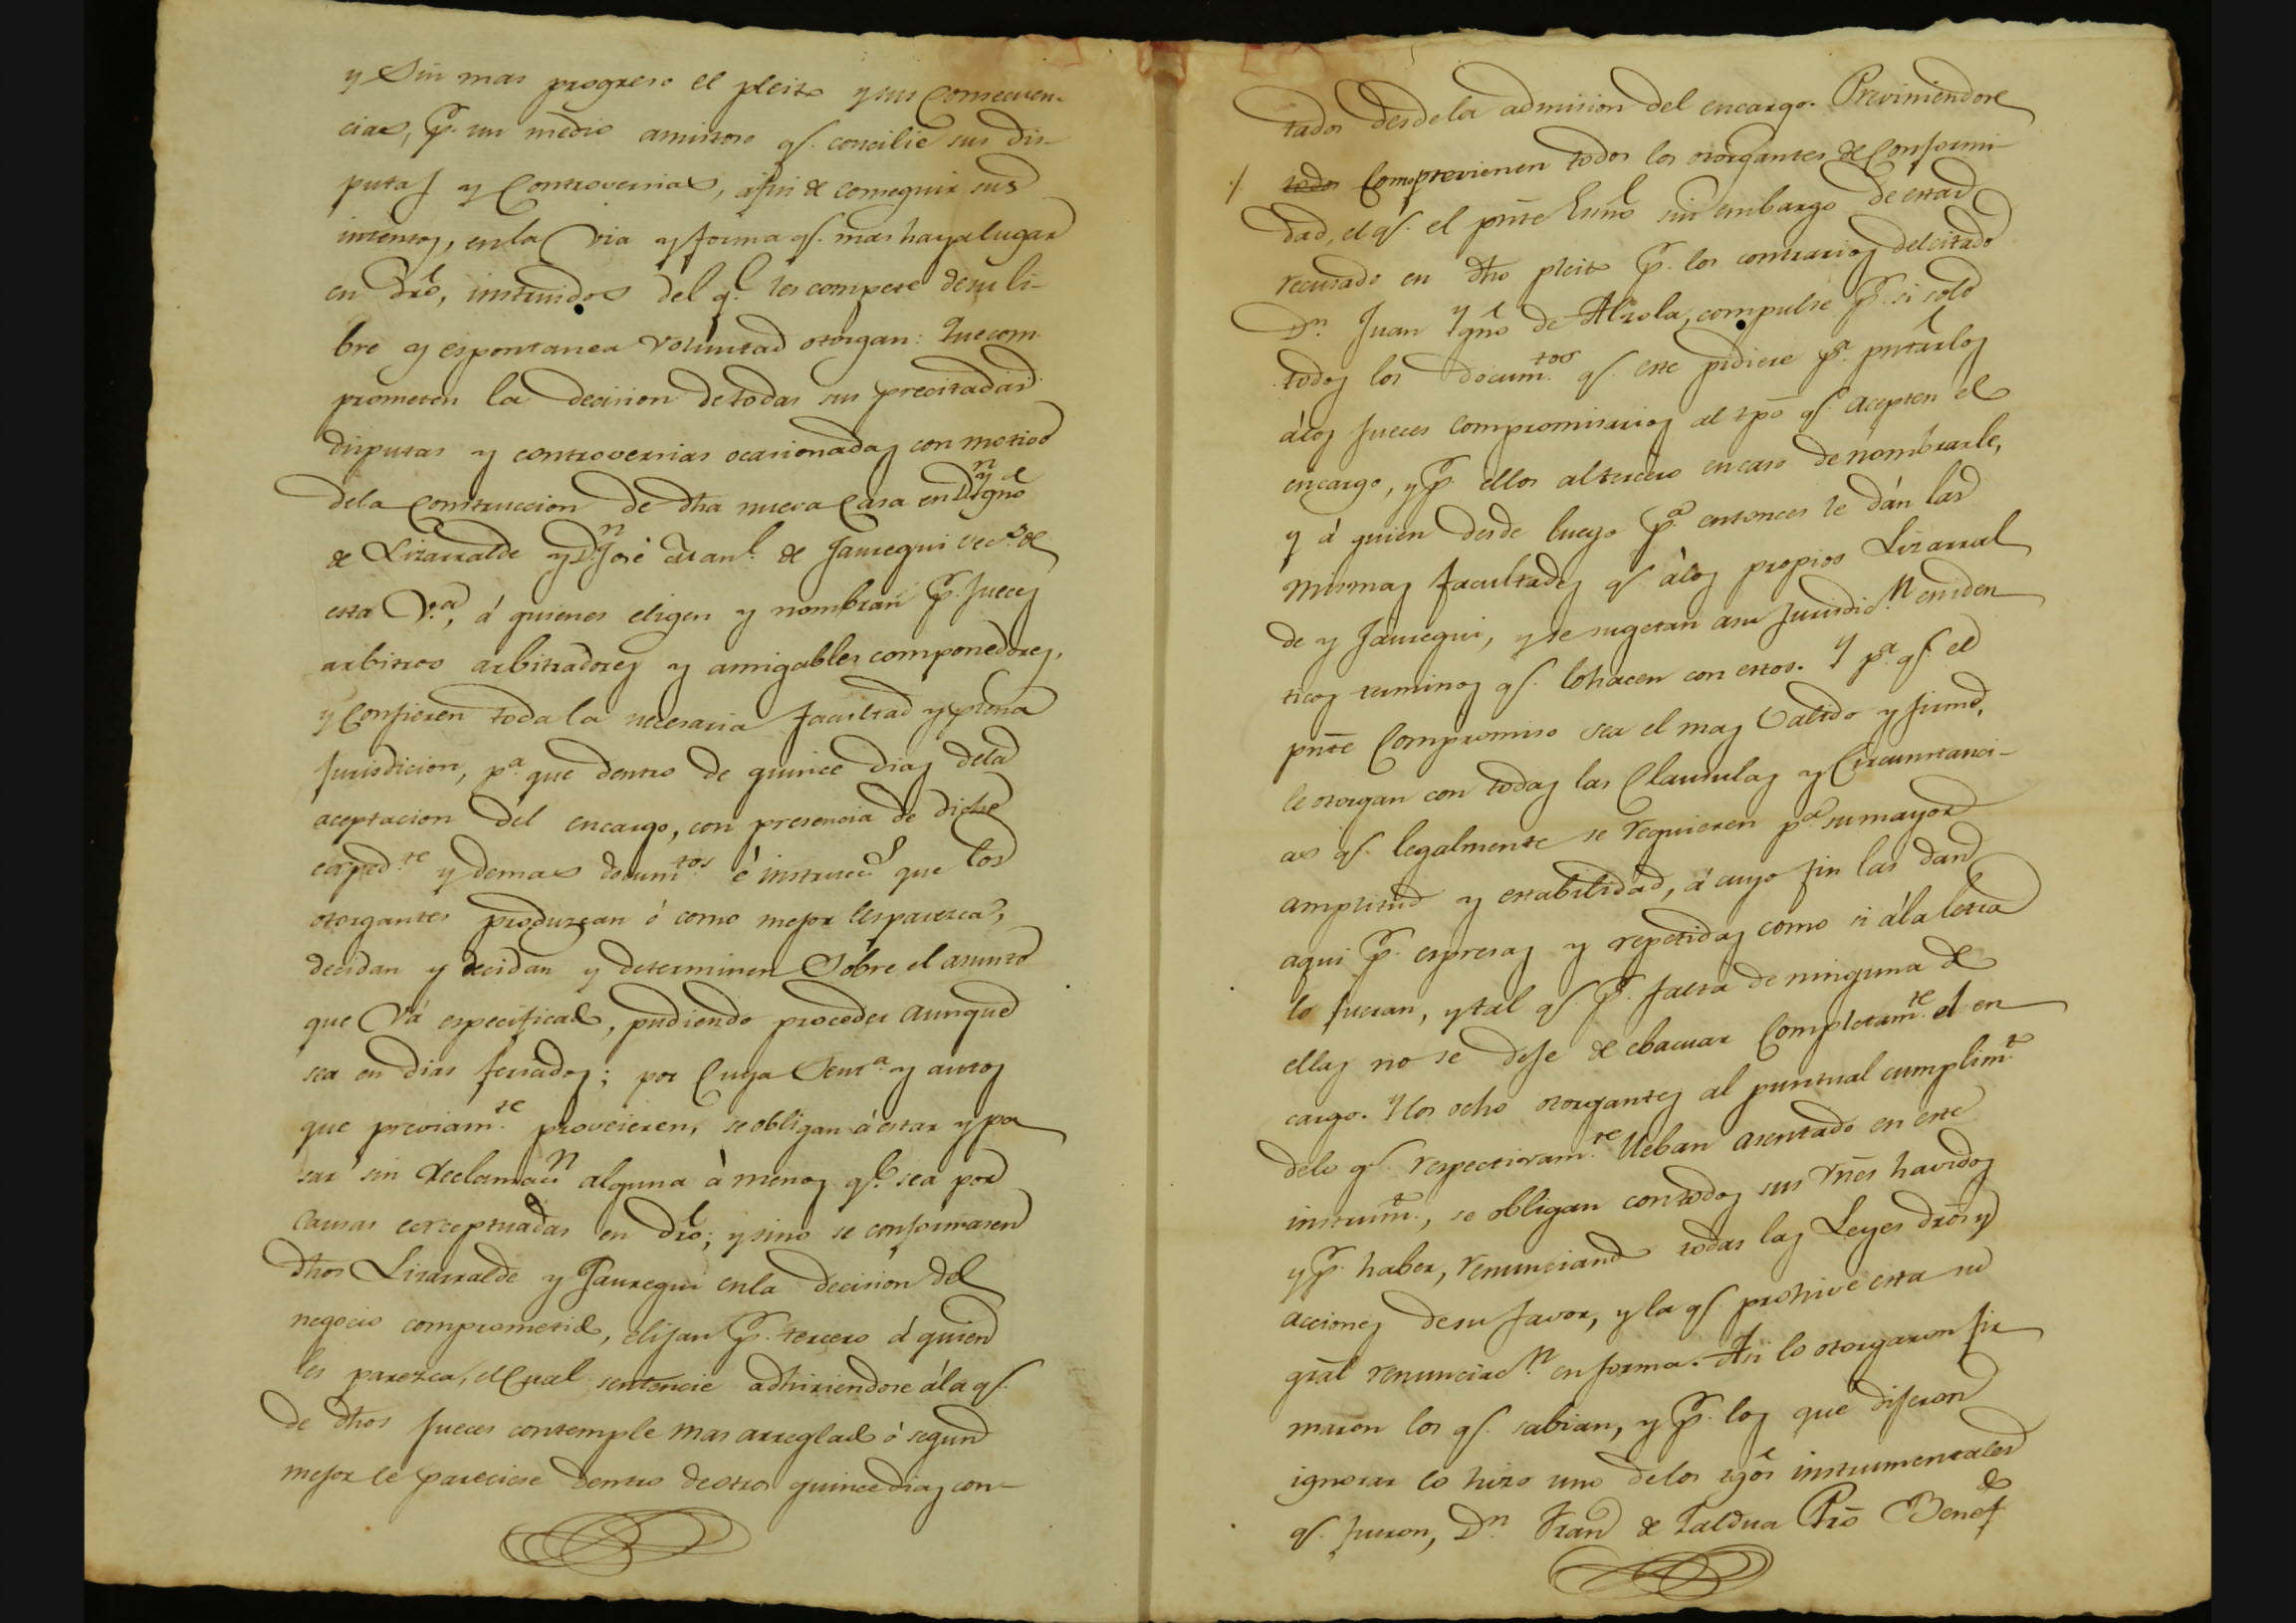 y Sin mas progreso el pleito y sus Consecuen-
cias, Pr. un medio amistoso qe. concilie sus dis-
putas y Controversias, afin de conseguir sus
intentos, en la Via y forma qe. mas haya lugar
en dro, instruidos del qe. les compete de su li-
bre y espontanea voluntad otorgan: Que com-
prometen la decision de todas sus precitadas
disputas y controversias ocasionadas con motivo
dela Construccion de dha nueva Casa en Dn Ygno
de Lizarralde y Dn José Manl. de Jauregui vecs. de
esta Va., á quienes eligen y nombran Pr. Jueces
arbitros arbitradores y amigables componedores,
y Confieren toda la necesaria facultad y plena
Jurisdicion, pa. que dentro de quince dias dela
aceptacion del encargo, con presencia de dicho
expedte. y demas documtos. é instrucs. que los
otorgantes produzcan ó como mejor les parezca,
decidan y decidan y determinen Sobre el asunto
que Vá especificado, pudiendo proceder aunque
sea en dias feriados; por Cuya Senta. y autos
que previamte. proveieren, se obligan á estar y pa
sar sin reclamacn. alguna à menos qe. sea por
Causas exceptuadas en dro; y sino se conformasen
dhos Lizarralde y Jauregui en la decision del
negocio comprometido, elijan Pr. tercero á quien
les parezca, el Cual sentencie adhiriendose á la qe.
de dhos Jueces contemple mas arreglado ó segun
mejor le pareciere dentro de otros quince dias con-
tados desde la admision del encargo. Previniendose
./ todos Como previenen todos los otorgantes de Conformi-
dad, el qe. el pnte Esno sin embargo de estar
recusado en dho pleito Pr. los contrarios del citado
Dn. Juan Ygno de Alzola, compulse Pr. si solo
todos los documtos. qe. este pidiere pa. pntarlos
á los Jueces Compromisarios al tpo qe. acepten el
encargo, y Pr. ellos al tercero en caso de nombrarle,
y á quien desde luego Pa. entonces le dán las
mismas facultades qe. à los propios Lizarral
de y Jauregui, y se sugetan a su Jurisdicn. en iden
ticos terminos qe. lo hacen con estos. Y pa. qe. el
pnte Compromiso sea el mas Valido y firme,
le otorgan con todas las Clausulas y Circunstanci-
as qe. legalmente se requieren pa. su mayor
amplitud y estabilidad, á cuyo fin las dan
aqui Pr. espresas y repetidas como si á la letra
lo fueran, y tal qe. Pr. falta de ninguna de
ellas no se deje de ebacuar Completamte. el en
cargo. Y los ocho otorgantes al puntual cumplimto
delo qe. respectivamte. lleban asentado en este
instrumto., se obligan con todos sus vnes havidos
y Pr. haber, renunciando todas las Leyes dros y
acciones de su favor, y la qe. prohive esta su
gral renunciacn. en forma. Asi lo otorgaron fir
maron los qe. sabian, y Pr. los que dijeron
ignorar lo hizo uno delos tgos instrumentales
qe. fueron, Dn Fran de Zaldua Pro Benefdo